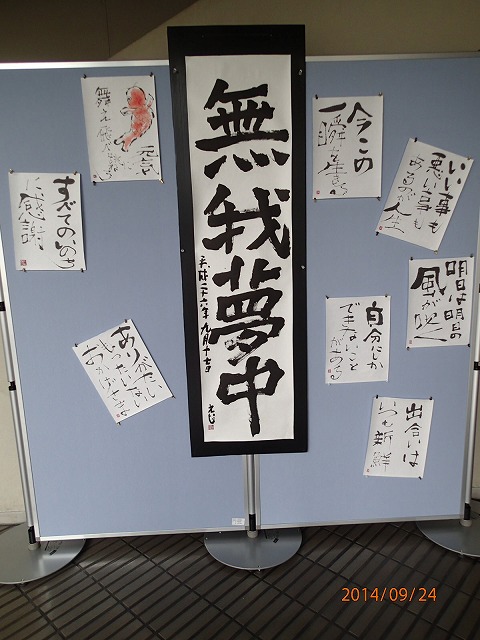 無我夢中
平成二十六年九月
今この
一瞬を生きる
いい事も
悪い事も
あるのが人生
明日は明日の
風が吹く
自分にしか
できないこと
がある
出合いは
いつも新鮮
すべてのいのち
に感謝
ありがたい
もったいない
おかげさま
2014/09/24